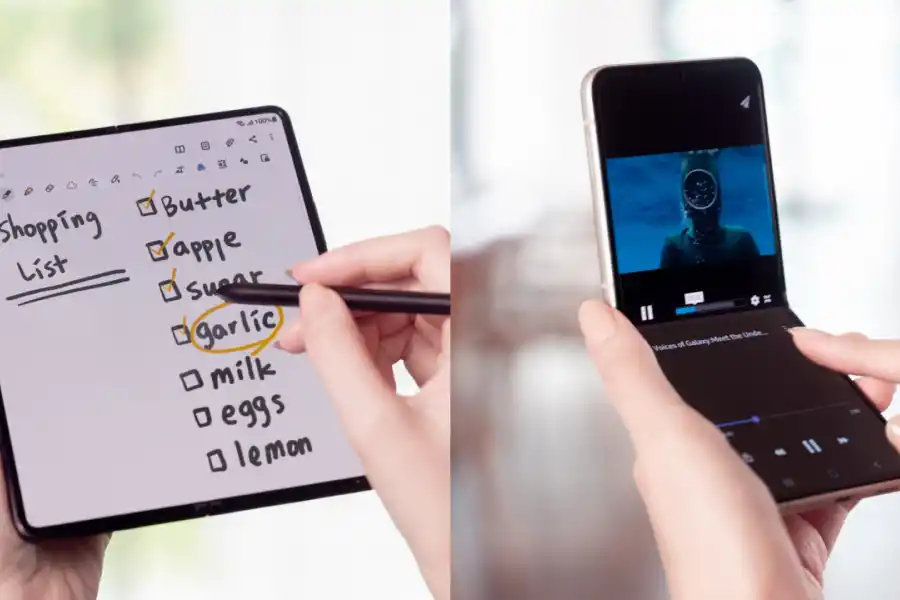 100%
Shopping
List
Butter
apple
sugar
garlic
milk
eggs
lemon
Voices of Galaxy:Meet the Unde...